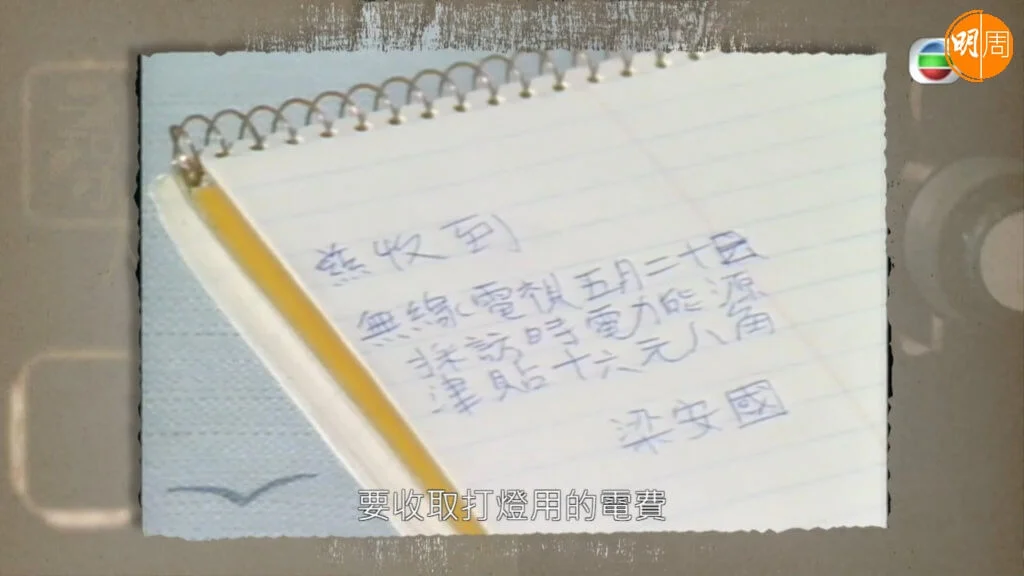 明周
茲收到
無線電視五月二十
採訪時電力能源
津貼十六元八角
梁安國
要收取打燈用的電費